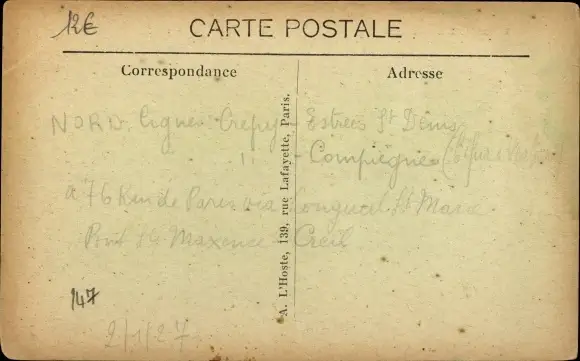 12€
CARTE POSTALE
Correspondance
Adresse
NORD. Lignes Crépy - Estrées St Denis
" - Compiègne
à 76 Km de Paris via Longueil Ste Marie
Pont Ste Maxence Creil
A. L'Hoste, 139, rue Lafayette, Paris.
147
2/1/27